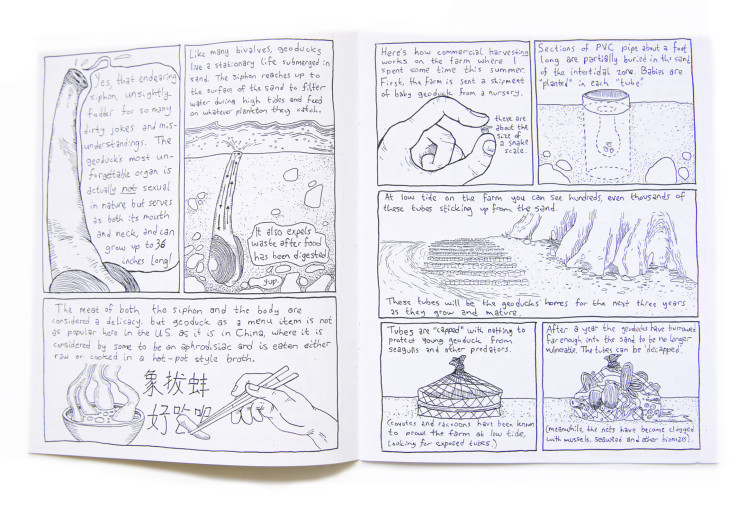 Yes, that endearing
siphon, unsightly.
fodder for so many
dirty jokes and mis-
understandings. The
geoduck's most un-
forgetable organ is
actually not sexual
in nature but serves
as both its mouth
and neck, and can
grow up to 36
inches long!
Like many bivalves, geoducks
live a stationary life submerged in
sand. The siphon reaches up to
the surface of the sand to filter
water during high tides and feed
on whatever plankton they catch.
It also expels
waste after food
has been digested
yup.
The meat of both the siphon and the body are
considered a delicacy, but geoduck as a menu item is not
as popular here in the U.S. as it is in China, where it is
considered by some to be an aphrodisiac and is eaten either
raw or cooked in a hot-pot style broth.
象拔蚌
好吃呢
Here's how commercial harvesting
works on the farm where I
spent some time this summer.
First, the farm is sent a shipment
of baby geoduck from a nursery.
these are
about the
size of
a snake
scale.
Sections of PVC pipe about a foot
long are partially buried in the sand
of the intertidal zone. Babies are
"planted" in each "tube"
At low tide on the farm you can see hundreds, even thousands of
these tubes sticking up from the sand.
These tubes will be the geoducks homes for the next three years
as they grow and mature.
Tubes are "capped" with netting to
protect young geoduck from
seagulls and other predators.
(coyotes and racoons have been known
to prowl the farm at low tide,
looking for exposed tubes.)
After a year the geoducks have burrowed
far enough into the sand to be no longer
vulnerable. The tubes can be 'decapped'.
(meanwhile, the nets have become clogged
with mussels, seaweed and other biomass).